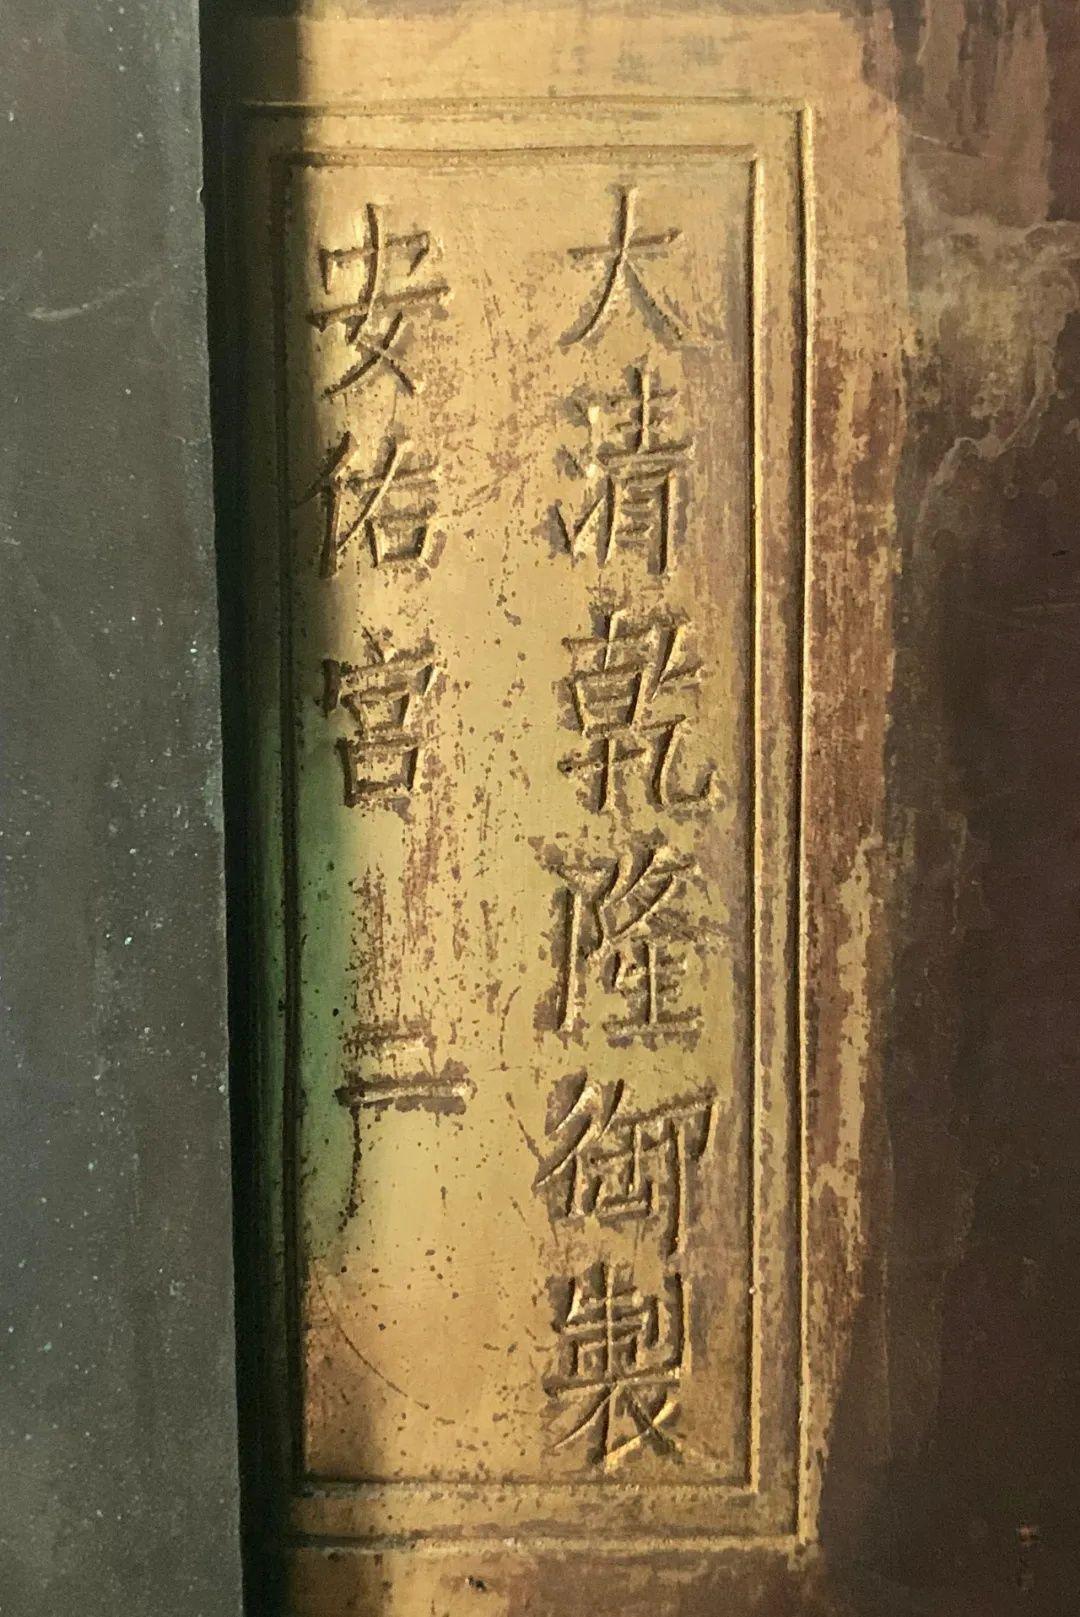 大清乾隆御製
安佑宮 二